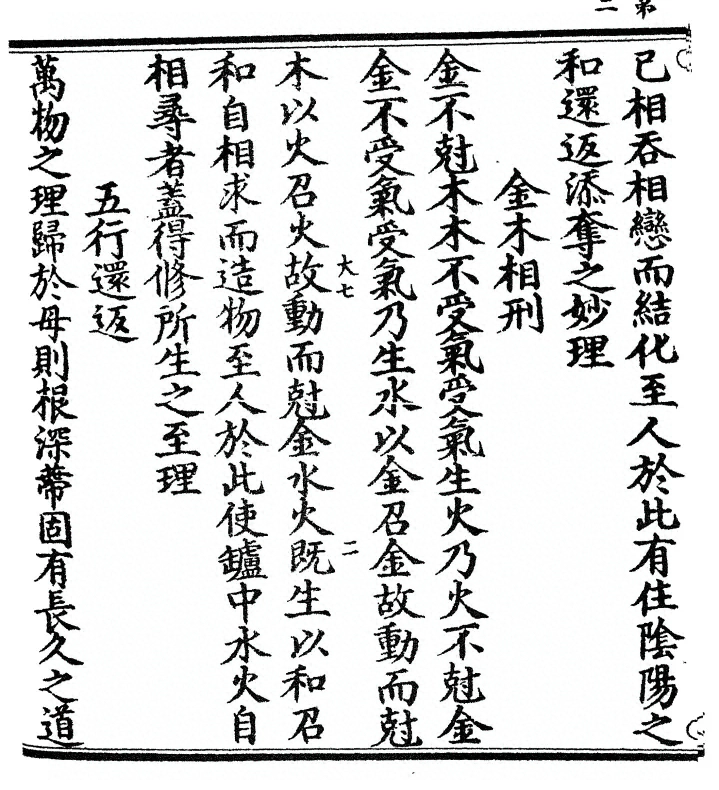 第二
已相吞相戀而結化至人於此有住陰陽之
和還返添奪之妙理
金木相刑
金不尅木木不受氣受氣生火乃火不尅金
金不受氣受氣乃生水以金召金故動而尅
大七
二
木以火召火故動而尅金水火既生以和召
和自相求而造物至人於此使鑪中水火自
相尋者蓋得修所生之至理
五行還返
萬物之理歸於母則根深蔕固有長久之道